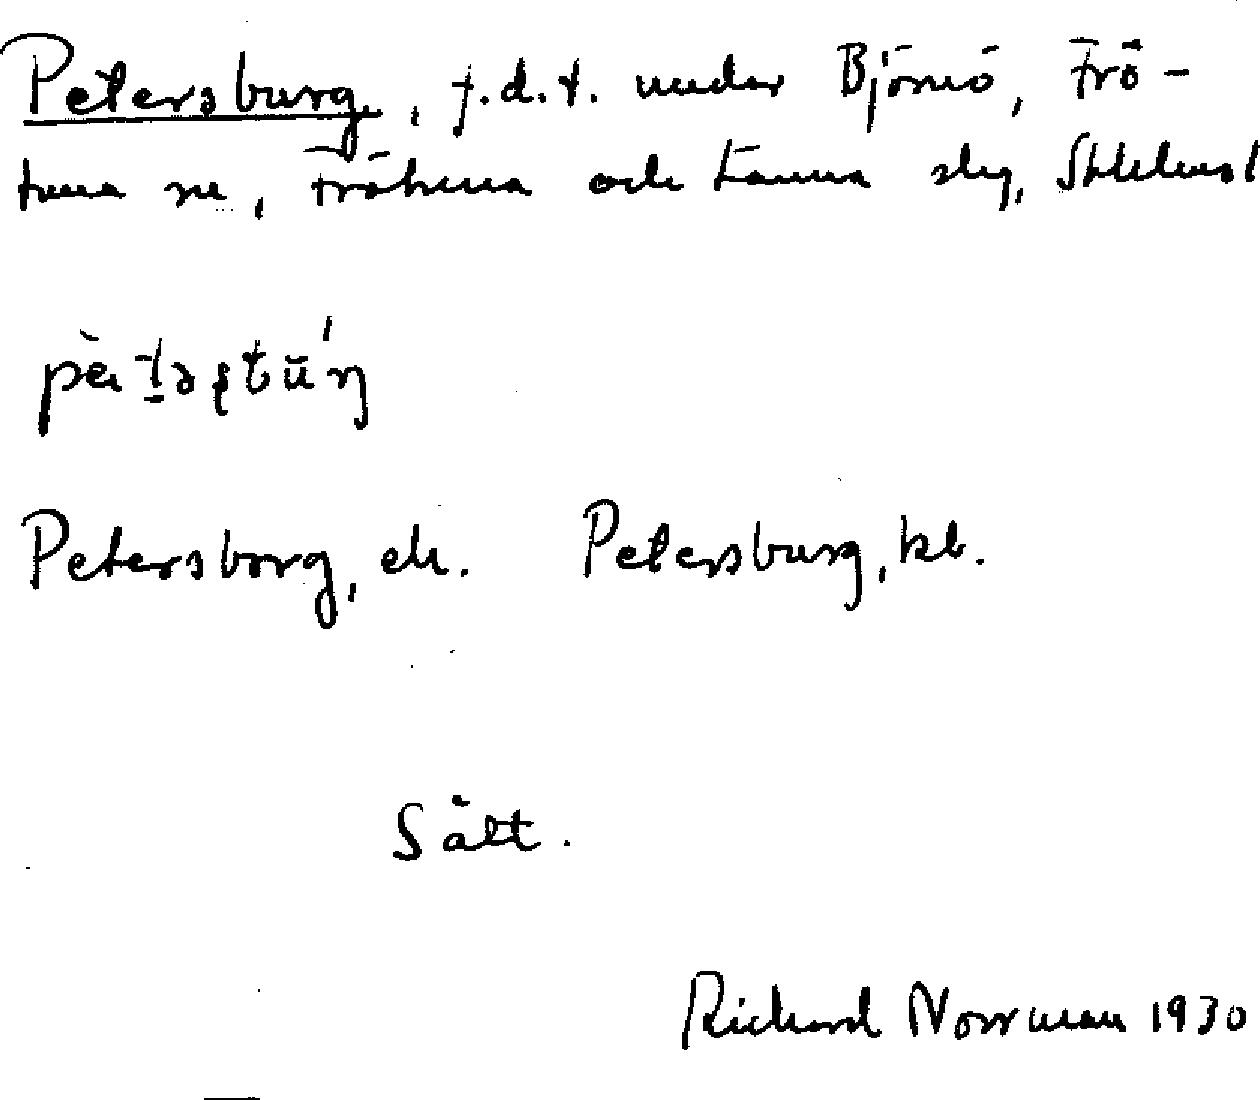 Petersburg, f.d.t. under Björnö, Frö-
tuna sn, Frötuna och Länna slg, Sthlms l
Petersborg, ek. Petersburg, kb.
Sålt.
Richard Norrman 1930